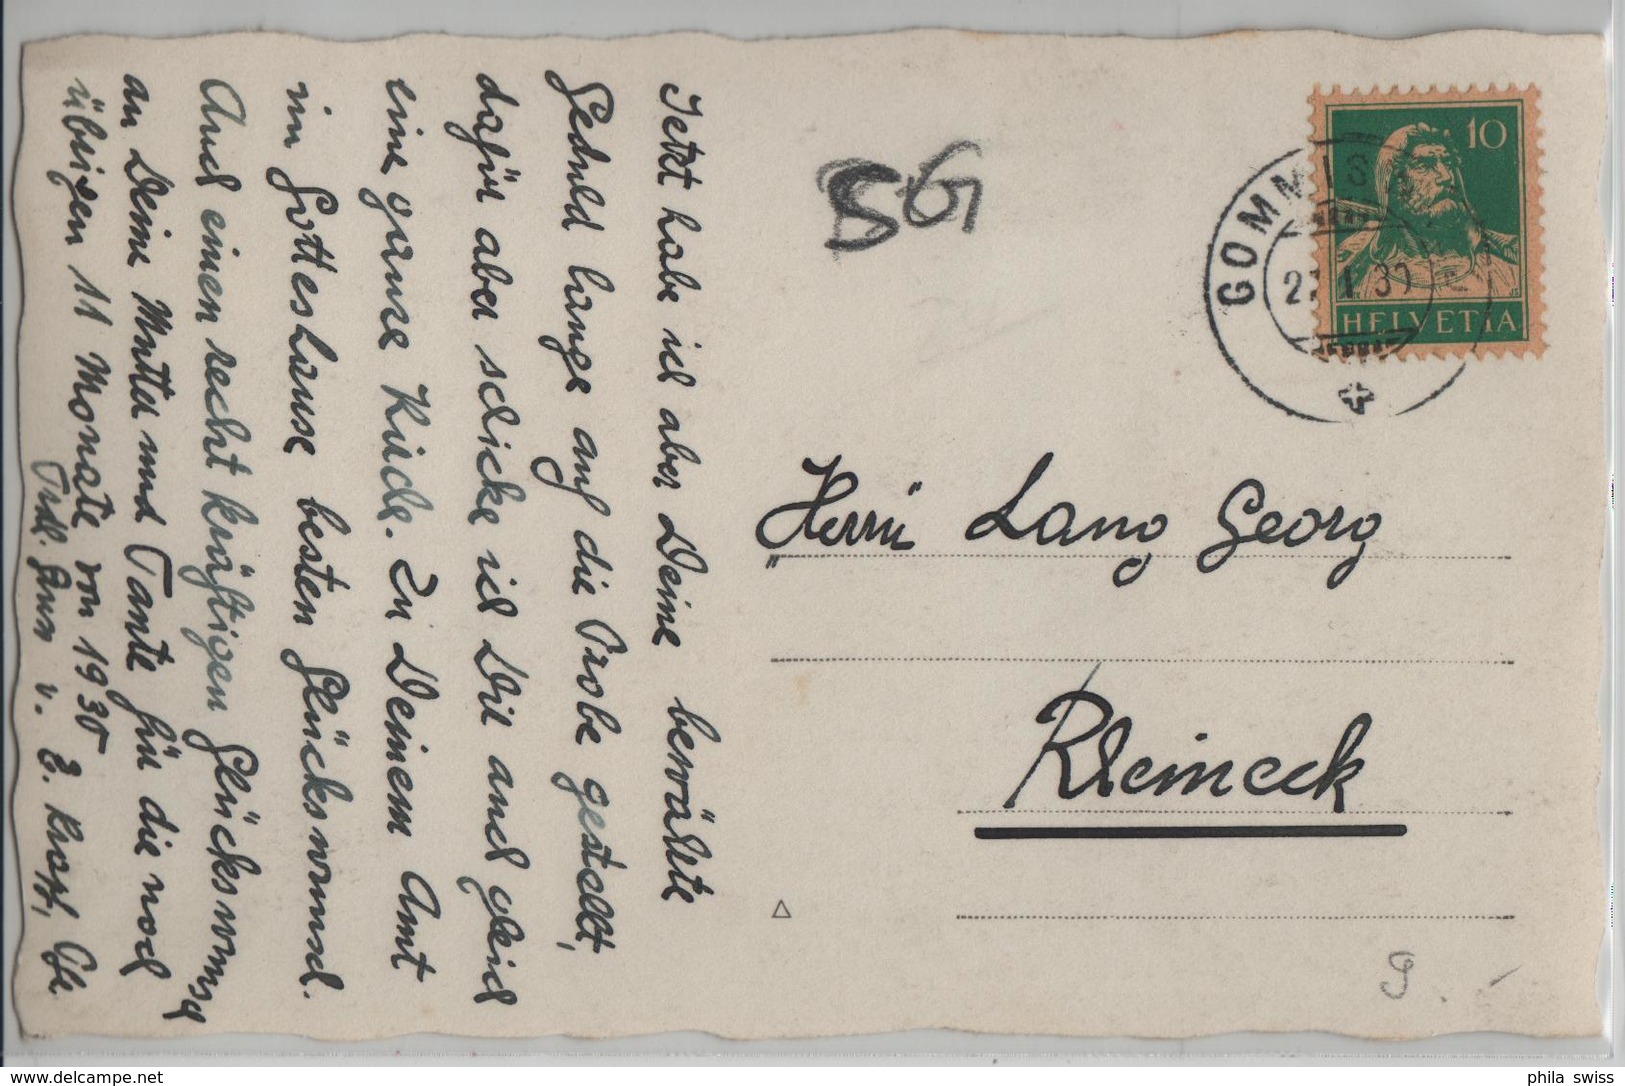 Jetzt habe ich aber Deine bewährte
Geduld lange auf die Probe gestellt,
dafür aber schicke ich Dir auch gleich
eine ganze Küche. Zu Deinem Amt
im Gotteshause besten Glückswunsch.
Auch einen recht kräftigen Glückswunsch
an Deine Mutter und Tante für die noch
übrigen 11 Monate von 1930
Frdl. Gruss v. E. Kost,
SG
GOMMIS
1 30
10
HELVETIA
Herrn Lang Georg
Rheineck
9.
www.delcampe.net
phila_swiss